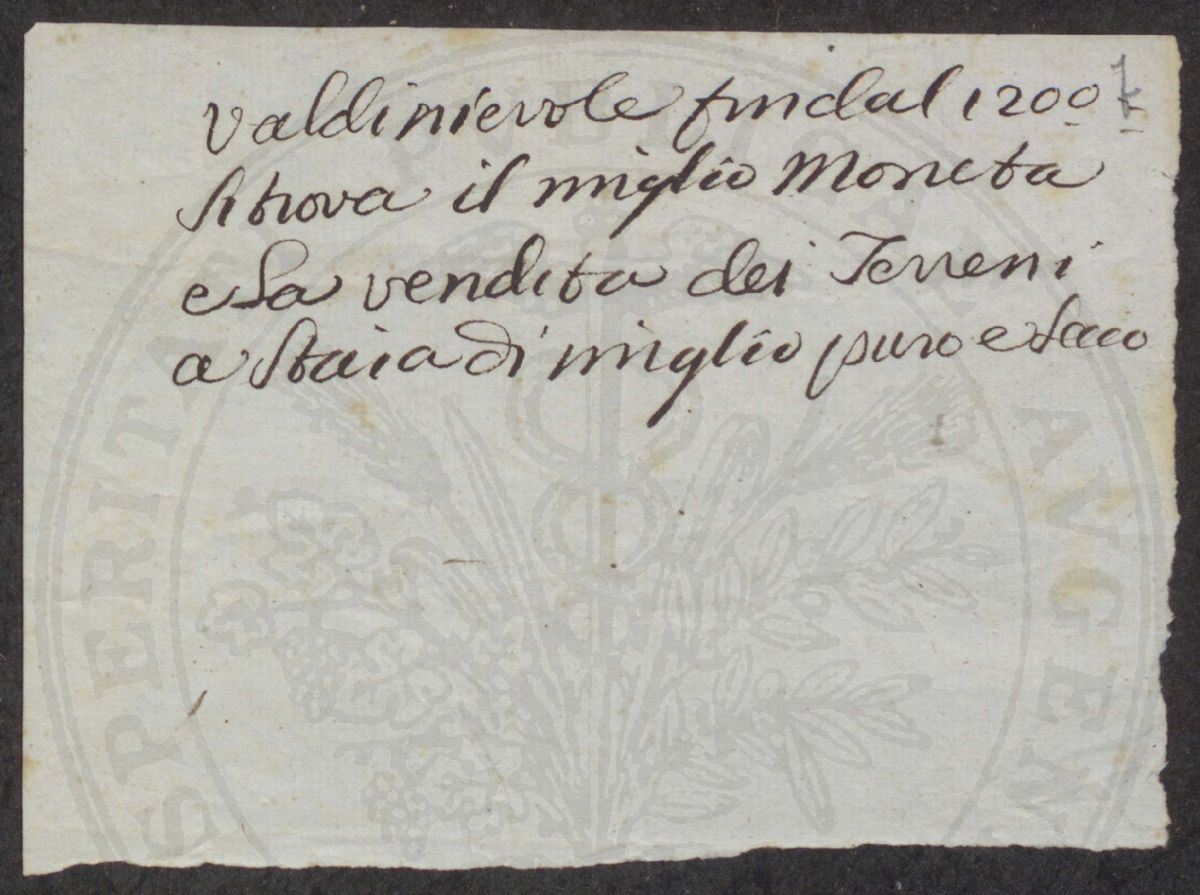 Valdinievole fin dal 1200
Si trova il miglio Moneta
e La vendita dei Terreni
a Staia di miglio puro e Secco